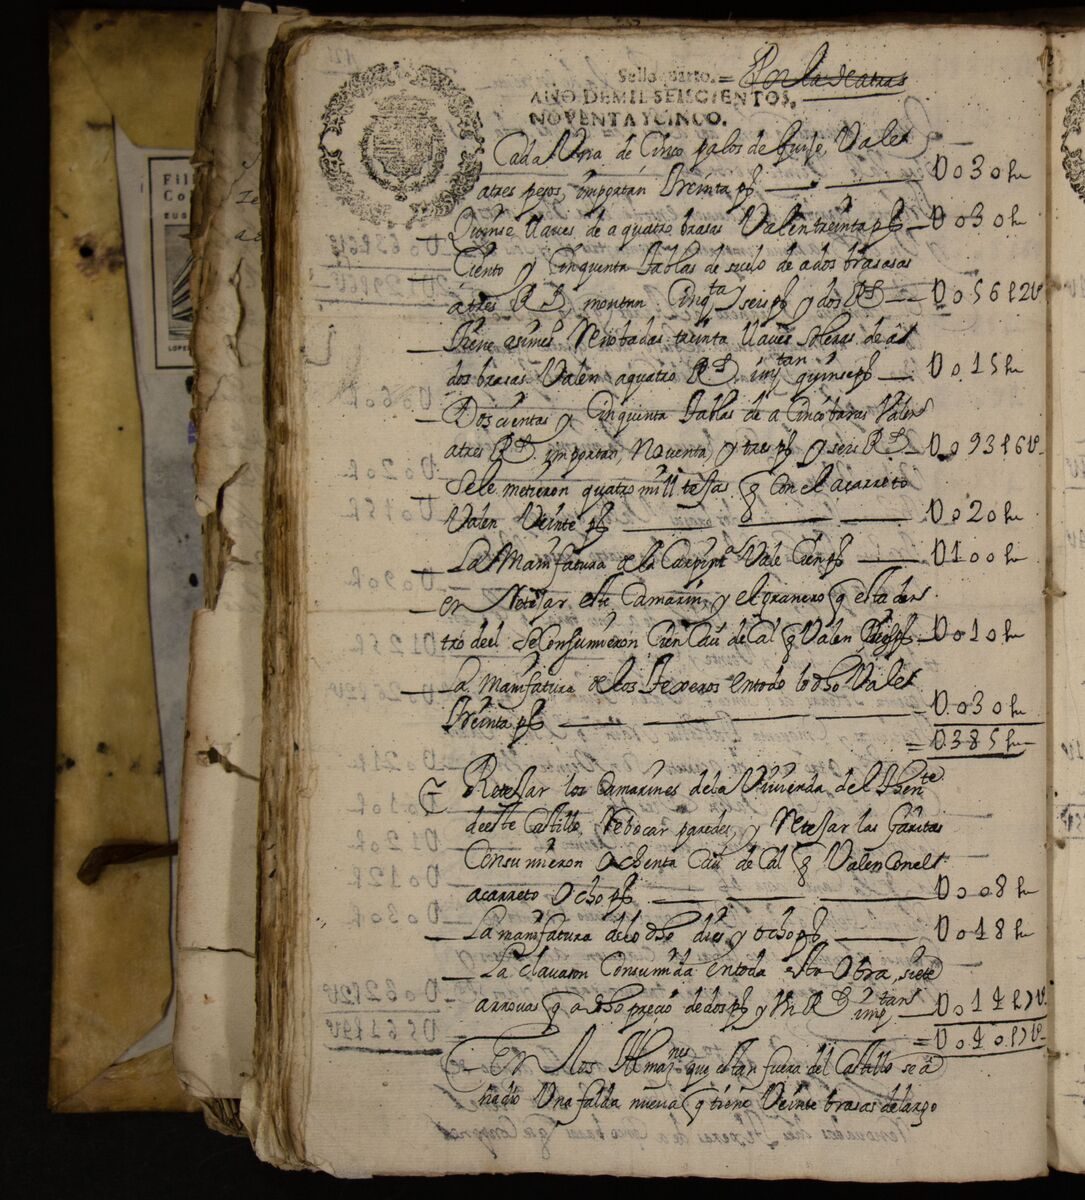 Sello quarto. = Por la de atras
AÑO DE MIL SEISCIENTOS,
NOVENTA Y CINCO.
Cada Una de Cinco palos de quise, Valen
atres pesos, importan treinta ps — U030 ps
Quinse llaves de a quatro brasas Valen treinta ps — U030 ps
Ciento y Cinquenta tablas de suelo de a dos brasasas
atres Rs. montan Cinqta y seis ps y dos Rs — U056 p 2 U
Tiene asimes. Renobadas treinta llaves soleras de a
dos brasas. Valen aquatro Rs. imptan quinse ps — U015 ps
Doscientas y Cinquenta tablas de a Cinco baras Valen
atres Rs. importan, Noventa, y tres ps y seis Rs — U093 p 6 U
Sele metieron quatro mill tejas q Con el acarreto
Valen Veinte ps — U020 ps
La Manifatura de la Carpinta Vale Cien ps — U100 ps
en Retejar este Camarin, y el granero q esta den
tro deel se Consumieron Cien Caü de Cal q Valen Dies ps — U010 ps
La manifatura de los texeros en todo lo dho Vale
treinta ps — U030 ps
= U385 ps
Retejar los Camarines de la Vivienda del thente
deeste Castillo, Rebocar paredes, y Retejar las Garitas
Consumieron Ochenta Caü de Cal q Valen Con el
acarreto Ocho ps — U008 ps
La manifatura delo dho dies y ocho ps — U018 ps
La clavason Consumida en toda esta Obra, siete
arrovas q a dho precio de dos ps y Un Rl imptan — U014 p 7 U
= U040 p 7 U
En los Almanes que estan fuera del Castillo se a
hecho Una falda nueva q tiene Veinte brasas de largo
Fil
Co
sus
LOPE